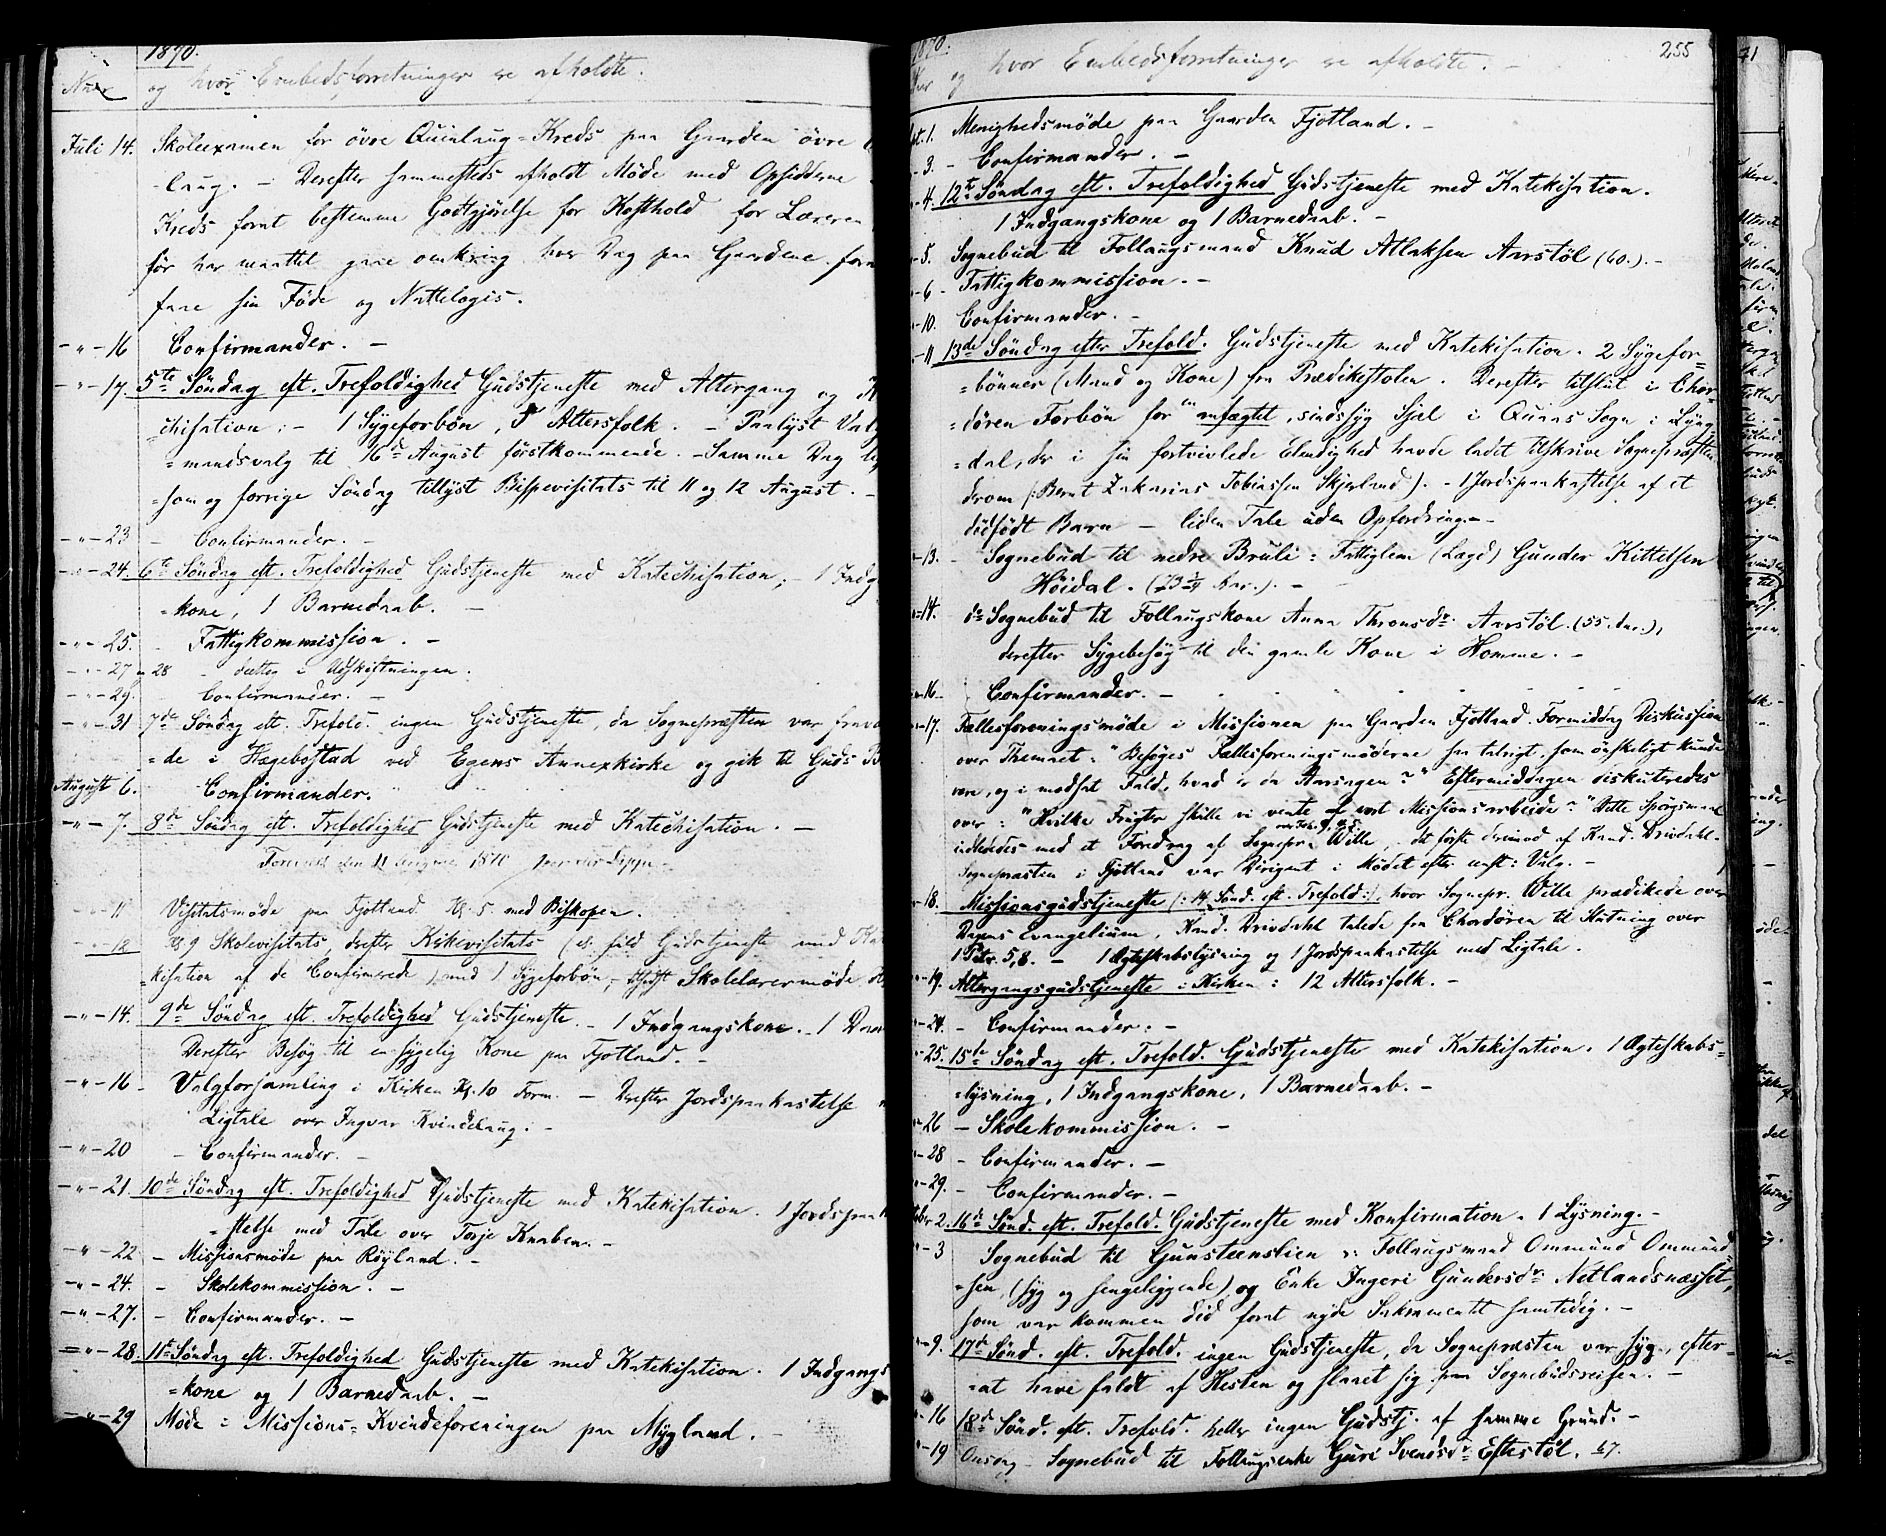 1870.
Naar og hvor Embedsforretninger ere afholdte.
Juli 14. Skoleexamen for övre Quinlaug=Kreds paa Gaarden övre
laug. – Derefter sammesteds afholdt Möde med Opsidderne
Kreds forat bestemme Godtgjörelse for Kosthold for Læreren
för har maattet gaae omkring hver Dag paa Gaardene for
faae sin Föde og Nattelogis.
–"–16 Confirmander. –
–"–17. 5te Söndag eft. Trefoldighed Gudstjeneste med Altergang og K
=chisation: – 1 Sygeforbön, Altersfolk. – Paalyst Valg
=mandsvalg til 16de August förstkommende. – Samme Dag
=som og forrige Söndag tillyst Bispevisitats til 11 og 12 August. –
–"–23 – Confirmander. –
–"–24. 6te Söndag eft. Trefoldighed Gudstjeneste med Katechisation; – 1 Indg
=kone, 1 Barnedaab. –
–"–25. – Fattigkommission. –
–"–27 28 – deeltog i Udskiftningen.
–"–29. Confirmander. –
–"–31 7de Söndag eft. Trefold. ingen Gudstjeneste, da Sognepræsten var fravæ
=de i Hægebostad ved Egens Annexkirke og gik til Guds B
August 6. Confirmander.
–"–7. 8de Söndag eft. Trefoldighed Gudstjeneste med Katechisation. –
den 11 August 1870
–"–11 Visitatsmöde paa Fjotland Kl. 5. med Biskopen.
–"–12 Kl 9 Skolevisitats, derefter Kirkevisitats ( fuld Gudstjeneste med Kate
=kisation af de Confirmerede) med 1 Sygeforbön, – Skolelærermöde.
–"–14. 9de Söndag eft. Trefoldighed Gudstjeneste. – 1 Indgangskone. – 1
Derefter Besög til en sygelig Kone paa Fjotland. –
–"–16 – Valgforsamling i Kirken Kl. 10 Form. – Derefter Jordspaakastelse
Ligtale over Ingvar Kvindelaug. –
–"–20 – Confirmander. –
–"–21. 10de Söndag eft. Trefoldighed Gudstjeneste med Katekisation. 1 Jordspaak
=stelse med Tale over Terje Knaben. –
–"–22 – Missionsmöde paa Röyland. –
–"–24. – Skolekommission. –
–"–27. – Confirmander. –
–"–28. 11te Söndag eft. Trefoldighed Gudstjeneste med Katekisation. 1 Indgangs
=kone og 1 Barnedaab. –
–"–29 Möde i Missions=Kvindeforeningen paa Mygland. –
1870. 255
og hvor Embedsforretninger ere afholdte. –
1. Menighedsmöde paa Gaarden Fjotland. –
3. – Confirmander. –
–4. 12te Söndag eft. Trefoldighed Gudstjeneste med Katekisation.
1 Indgangskone og 1 Barnedaab. –
–5. Sognebud til Follaugsmand Knud Atlaksen Aarstöl (60.). –
–6 – Fattigkommission. –
–10. Confirmander. –
–11 13de Söndag efter Trefold. Gudstjeneste med Katekisation. 2 Sygefor=
=bönner (Mand og Kone) fra Prædikestolen. Derefter tilslut i Chor=
=dören Forbön for en anfægtet, sindssyg Sjæl i Quaas Sogn i Lyng=
=dal, der i sin fortvivlede Elendighed havde ladet tilskrive Sognepræsten
derom (: Bernt Zakarias Tobiassen Skjerland). – 1 Jordspaakastelse af et
dödfödt Barn – liden Tale uden Opfordring. –
–13. – Sognebud til nedre Bruli: Fattiglem (Lægd) Gunder Kittelsen
Höidal. (73 3/4 Aar.). –
–14. do Sognebud til Follaugskone Anna Thronsdr Aarstöl (55 Aar.),
derefter Sygebesög til den gamle Kone i Homme. –
–16. Confirmander. –
–17. Fællesforeningsmöde i Missionen paa Gaarden Fjotland. Formiddag Diskussion
over Themaet: "Besöges Fællesforeningsmöderne saa talrigt, som önskeligt kunde
være, og i modsat Fald, hvad er da Aarsagen?" Eftermiddagen diskuteredes
over: "Hvilke Frugter skulle vi vente af vort Missionsarbeide?" Dette Spörgsmaal
indlededes med et Foredrag af Sognepr. Wille, det förste derimod af Kand. Drivdahl.
Sognepræsten i Fjotland var Dirigent i Mödet efter Valg. –
–18. Missionsgudstjeneste (: 14. Sönd. eft. Trefold:). hvor Sognepr. Wille prædikede over
Dagens Evangelium, Kand. Drivdahl talede fra Chordören til Slutning over
1 Petr. 5,8. – 1 Ægteskabslysning og 1 Jordspaakastelse med Ligtale.
–19. Altergangsgudstjeneste i Kirken: 12 Altersfolk. –
–24. – Confirmander. –
–25. 15de Söndag eft. Trefold. Gudstjeneste med Katekisation. 1 Ægteskabs=
=lysning, 1 Indgangskone, 1 Barnedaab. –
–26 – Skolekommission. –
–28 – Confirmander. –
–29. – Confirmander. –
2. 16de Sönd. eft. Trefold. Gudstjeneste med Konfirmation. 1 Lysning. –
–3 Sognebud til Gunsteenslien : Follaugsmand Ommund Ommund=
=sen, (syg og sengeliggende) og Enke Ingeri Gundersdr Netlandsnæsset,
som var kommen did forat nyde Sakramentet samtidig. –
–9. 17de Sönd. eft. Trefold. ingen Gudstjeneste, da Sognepræsten var syg, efter=
=at have faldt af Hesten og slaaet sig paa Sognebudsreisen. –
–16 18de Sönd. eft. Trefold. heller ingen Gudstj. af samme Grund. –
–19 Onsdag – Sognebud til Follaugsenke Guri Svendsdr Eftestöl. 67.